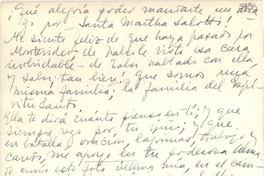 ¡Qué alegría poder mandarte un
por Santa Martha Salotti!
Me siento feliz de que haya pasado por
Montevideo - de haberle visto esa cara
inolvidable - de haber hablado con ella
y saber, tan bien! que somos una
misma familia; la familia del
Espíritu Santo.
Ella te dirá cuánto pienso en ti; y que
siempre ves por tu y que
en batalla, oración, lágrimas, trabajo y
canto, me apoyo en tu poderosa
Te envío esta foto última mía, en el